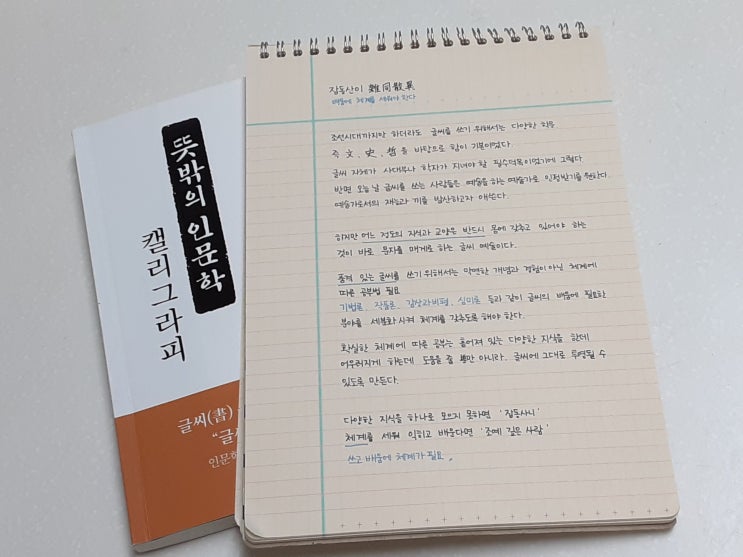 뜻밖의 인문학
캘리그라피
글씨(書)
"글
인문학
집동산이 雜同散異
배움에 체계를 세워야 한다
조선시대까지만 하더라도 글씨를 쓰기 위해서는 다양한 학문
즉 文, 史, 哲 을 바탕으로 함이 기본이었다.
글씨 자체가 사대부나 학자가 지녀야 할 필수덕목이었기에 그렇다.
반면 오늘날 글씨를 쓰는 사람들은 예술을 하는 예술가로 인정받기를 원한다.
예술가로서의 재능과 끼를 발산하고자 애쓴다.
하지만 어느 정도의 지식과 교양은 반드시 몸에 갖추고 있어야 하는
것이 바로 문자를 매개로 하는 글씨 예술이다.
품격 있는 글씨를 쓰기 위해서는 막연한 개념과 경험이 아닌 체계에
따른 공부법 필요
기법론, 작품론, 감상과 비평, 심미론 등과 같이 글씨의 배움에 필요한
분야를 세분화시켜 체계를 갖추도록 해야 한다.
확실한 체계에 따른 공부는 흩어져 있는 다양한 지식을 한데
어우러지게 하는데 도움을 줄 뿐만 아니라. 글씨에 그대로 투영될 수
있도록 만든다.
다양한 지식을 하나로 모으지 못하면 '집동사니'
체계를 세워 익히고 배운다면 '조예 깊은 사람'
쓰고 배움에 체계가 필요.